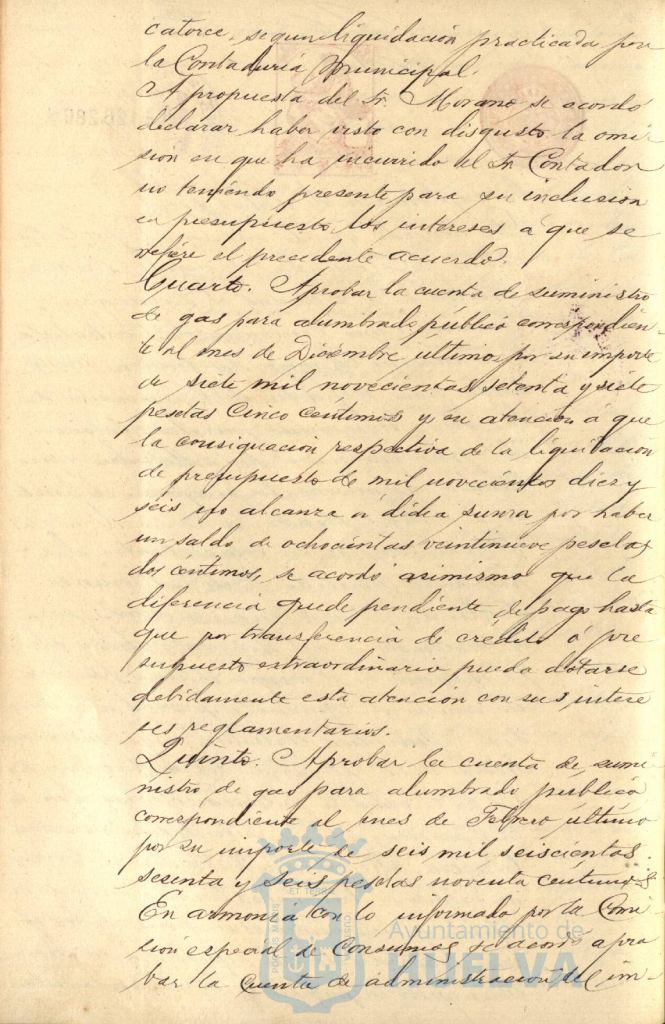 catorce, segun liquidación practicada por
la Contaduria Municipal.
A propuesta del Sr. Morano, se acordó
declarar haber visto con disgusto la omi-
sion en que ha incurrido el Sr. Contador
no teniendo presente para su inclusion
en presupuesto, los intereses a que se
refiere el precedente acuerdo.
Cuarto. Aprobar la cuenta de suministro
de gas para alumbrado público correspondien-
te al mes de Diciembre último, por su importe
de siete mil novecientas setenta y siete
pesetas cinco centimos y en atencion á que
la consignacion respectiva de la liquidacion
de presupuesto de mil novecientos diez y
seis no alcanza á dicha suma por haber
un saldo de ochocientas veintinueve pesetas
dos centimos, se acordó asimismo que la
diferencia quede pendiente de pago hasta
que por transferencia de crédito ó pre
supuesto extraordinario pueda dotarse
debidamente esta atencion con sus intere
ses reglamentarios.
Quinto. Aprobar la cuenta de sumi-
nistro de gas para alumbrado publico
correspondiente al mes de Febrero último
por su importe de seis mil seiscientas
sesenta y seis pesetas noventa centimos.
En armonia con lo informado por la Comi
sion especial de Consumos, se acordó apro
bar la cuenta de administracion del im-
Ayuntamiento de
HUELVA